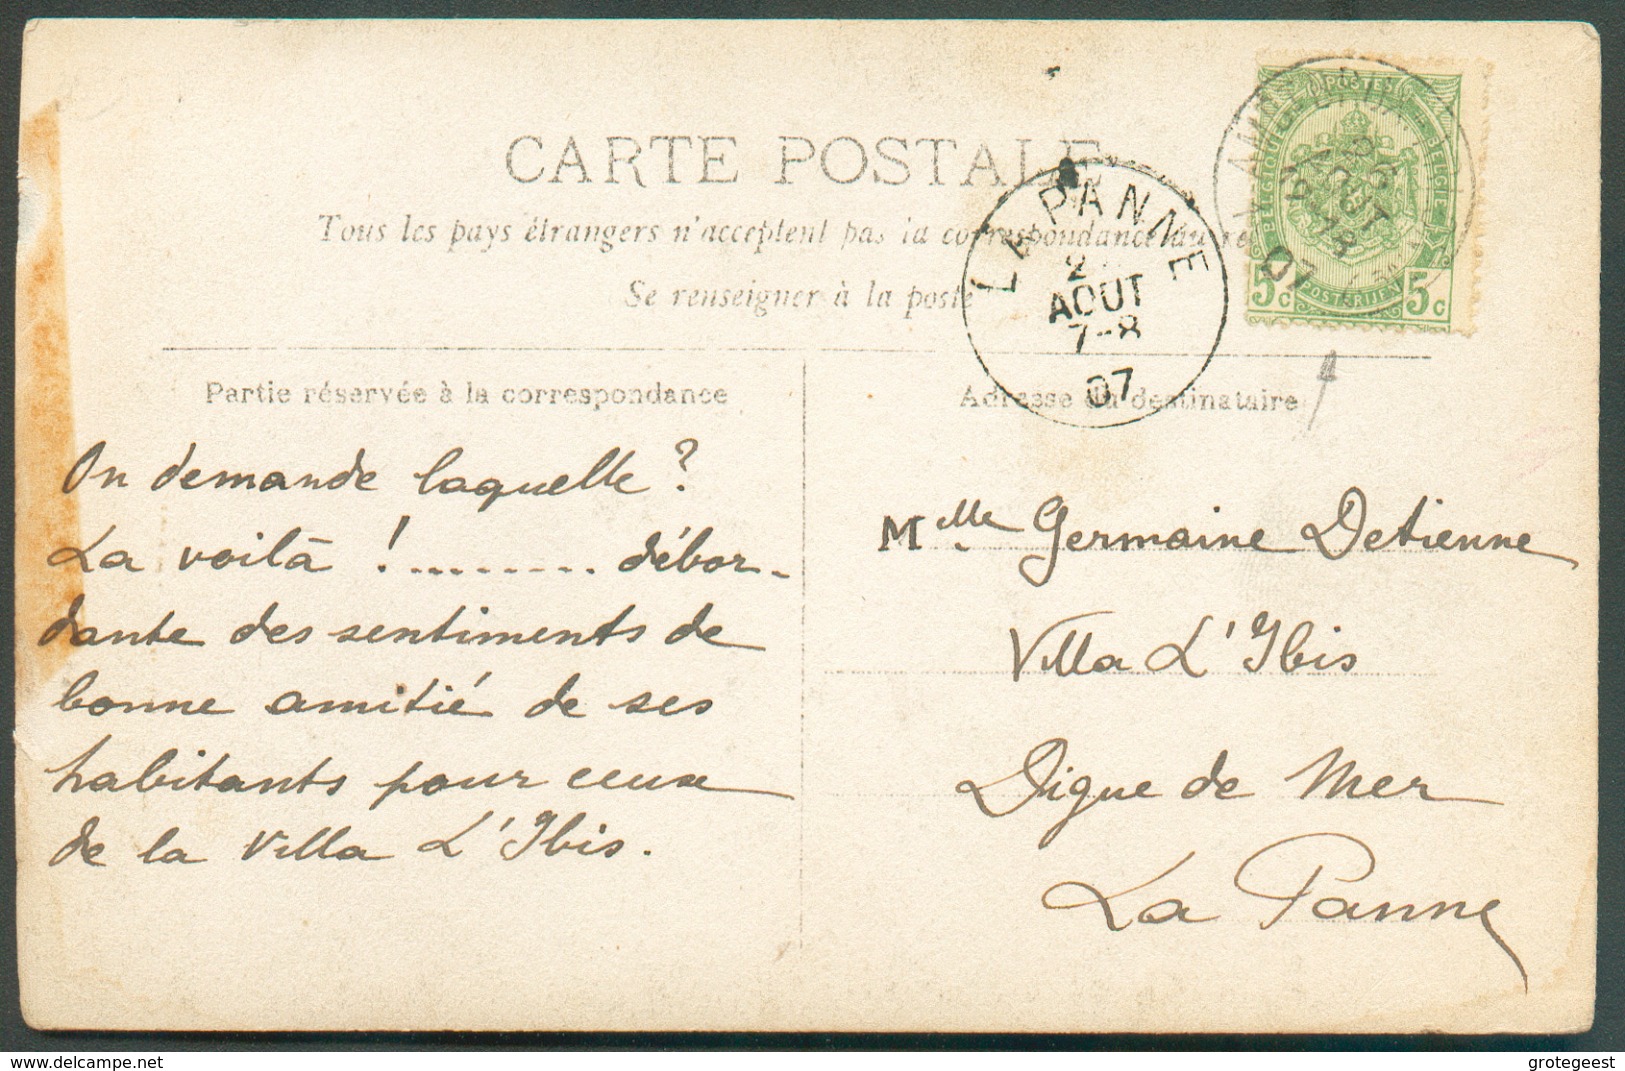 CARTE POSTALE
Tous les pays étrangers n'acceptent pas la correspondance au
Se renseigner à la poste
LA PANNE
AOUT
7-8
07
POSTES
BELGIQUE BELGIE
AOUT
07
POSTERIJEN
5c 5c
Partie réservée à la correspondance
Adresse du destinataire
On demande laquelle ?
La voilà ! ......... débor-
dante des sentiments de
bonne amitié de ses
habitants pour ceux
de la Villa L'Ibis.
Mlle Germaine Detienne
Villa L'Ibis
Digue de Mer
La Panne
delcampe.net
grotegeest